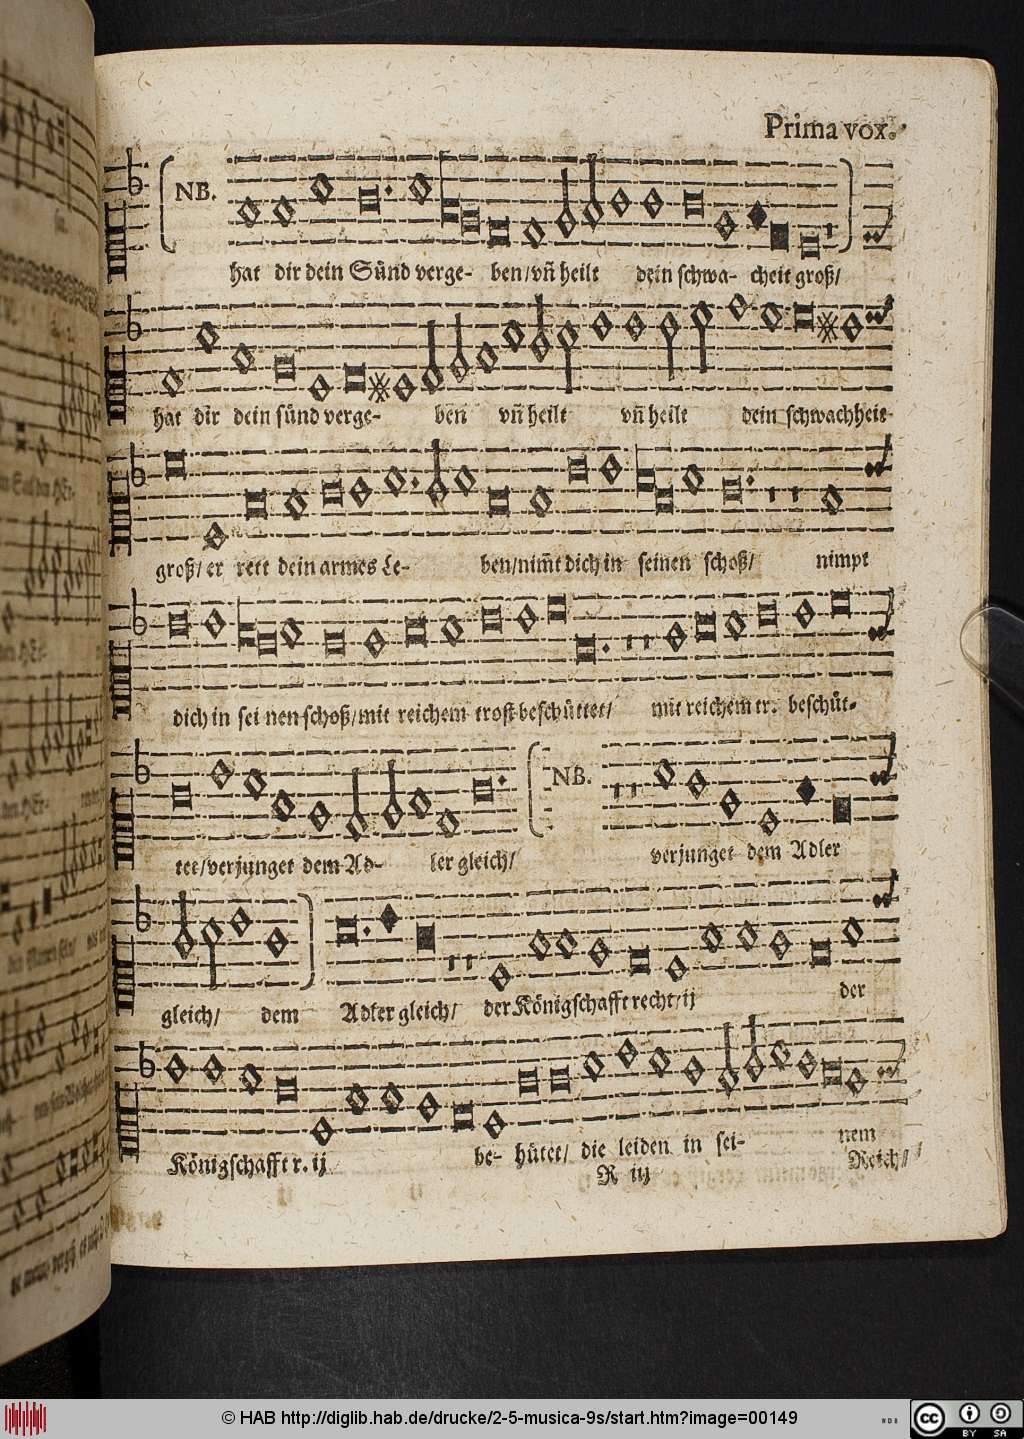 Prima vox.
NB.
hat dir dein Sünd verge- ben/vñ heilt dein schwa- cheit groß/
hat dir dein sünd verge- ben vñ heilt vñ heilt dein schwachheit
groß/ er rett dein armes Le- ben/nim̃t dich in seinen schoß/ nimpt
dich in sei nen schoß/mit reichem trost beschüttet/ mit reichem tr. beschüt-
NB.
tet/verjunget dem Ad- ler gleich/ verjunget dem Adler
gleich/ dem Adler gleich/ der König schafft recht/ij der
König schafft r. ij be- hütet/ die leiden in sei- nem
R iij Reich/
© HAB http://diglib.hab.de/drucke/2-5-musica-9s/start.htm?image=00149
cc BY SA